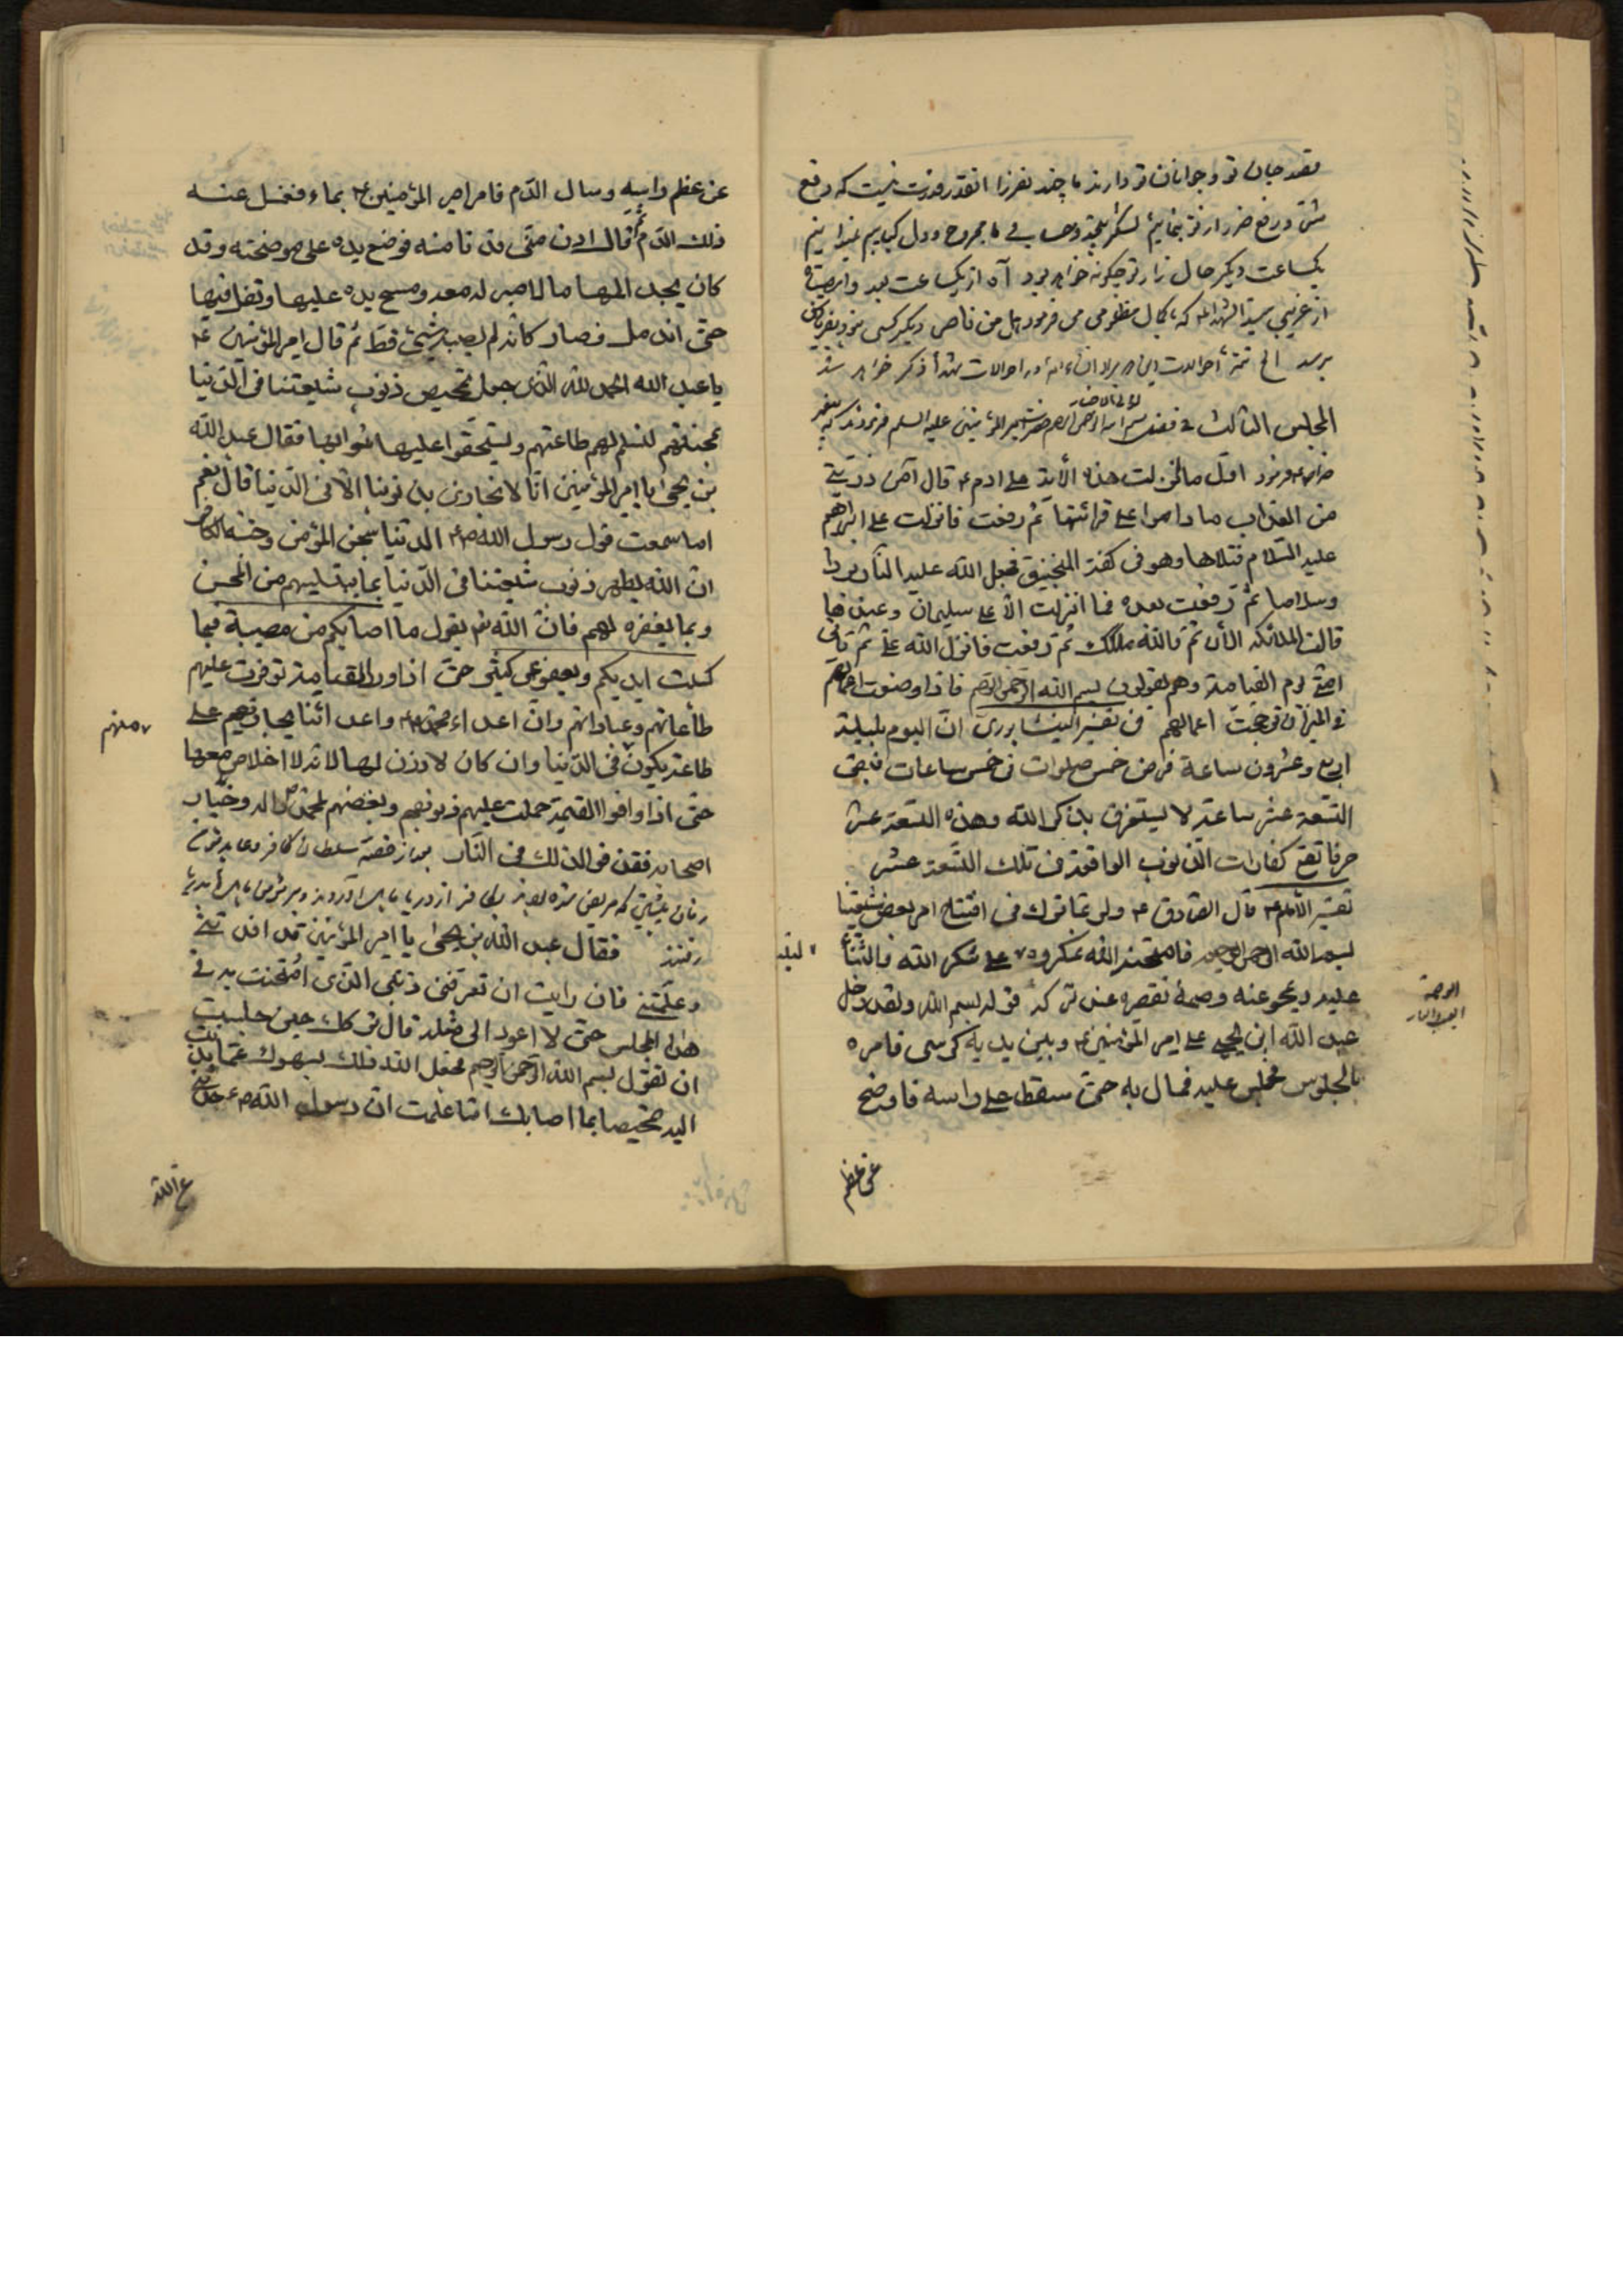 قصد جان تو و جوانان تو دارند ما چند نفر زنا انقدر قدرت نیست که دفع
یکساعت دیکر حال زار تو چکونه خواهد بود آه از یکساعت بعد وا مصیبتاه
از غریبی سید الشهداء که بکمال مظلومی می فرمود هل من ناصر دیکر کسی نبود
برسد الخ تتمه احوالات در احوالات شهدا ذکر خواهد شد
المجلس الثالث فی فضل بسم الله الرحمن الرحیم حضرت امیر المؤمنین علیه السلم فرمودند که
اول ما نزلت هذه الآیة علی ادم ع قال امن ذریتی
من العذاب ما داموا علی قرائتها ثم رفعت فانزلت علی ابراهیم
علیه السلام فتلاها وهو فی کفة المنجنیق فجعل الله علیه النار بردا
وسلاما ثم رفعت بعده فما انزلت الا علی سلیمان وعندها
قالت الملائکه الان تم والله ملکک ثم رفعت فانزل الله علی ثم یاتی
امتی یوم القیامة وهم یقولون بسم الله الرحمن الرحیم فاذا وضعت اعمالهم
فی المیزان ترجحت اعمالهم فی تفسیر النیشابوری ان الیوم بلیلة
اربع وعشرون ساعة فرض خمس صلوات فی خمس ساعات فبقی
التسعة عشر ساعة لا یستغرق بذکر الله وهذه التسعة عشر
حرفا تقع کفارات الذنوب الواقعة فی تلک التسعة عشر
تفسیر الامام ع قال الصادق ع ولربما ترک فی افتتاح امر بعض شیعتنا
بسم الله الرحمن الرحیم فامتحنه الله بمکروه علی شکر الله والثناء
علیه ویمحو عنه وصمة تقصیره عند ترکه قوله بسم الله ولقد دخل
عبد الله ابن یحیی علی امیر المؤمنین ع وبین یدیه کرسی فامره
بالجلوس فجلس علیه فمال به حتی سقط علی راسه فاوضح
عن عظم
الوصمة
العیب والعار
عن عظم راسه وسال الدم فامر امیر المؤمنین ع بماء فغسل عنه
ذلک الدم ثم قال ادن منی فدنا منه فوضع یده علی موضحته وقد
کان یجد المها ما لا صبر له معه ومسح یده علیها وتفل فیها
حتی اندمل فصار کانه لم یصبه شیئ قط ثم قال امیر المؤمنین ع
یا عبد الله الحمد لله الذی جعل تمحیص ذنوب شیعتنا فی الدنیا
بمحنتهم لتسلم لهم طاعتهم ویستحقوا علیها ثوابها فقال عبد الله
بن یحیی یا امیر المؤمنین انا لا نجازی بذنوبنا الا فی الدنیا قال نعم
اما سمعت قول رسول الله ص الدنیا سجن المؤمن وجنة الکافر
ان الله یطهر ذنوب شیعتنا فی الدنیا بما یبتلیهم من المحن
وبما یغفره لهم فان الله تع یقول ما اصابکم من مصیبة فبما
کسبت ایدیکم ویعفو عن کثیر حتی اذا وردوا القیامة توفرت علیهم
طاعاتهم وعباداتهم وان اعداء محمد ص واعدائنا یجازیهم علی
منهم
طاعة یکون فی الدنیا وان کان لا وزن لها لانه لا اخلاص معها
حتی اذا وافوا القیمة حملت علیهم ذنوبهم وبغضهم لمحمد ص واله وخیار
اصحابه فقذفوا لذلک فی النار
فقال عبد الله بن یحیی یا امیر المؤمنین قد افدتنی
وعلمتنی فان رایت ان تعرفنی ذنبی الذی امتحنت به فی
هذا المجلس حتی لا اعود الی مثله قال ترکک حین جلست
ان تقول بسم الله الرحمن الرحیم فجعل الله ذلک لسهوک عما ندبت
الیه تمحیصا بما اصابک اما علمت ان رسول الله ص حدثنی
عن الله